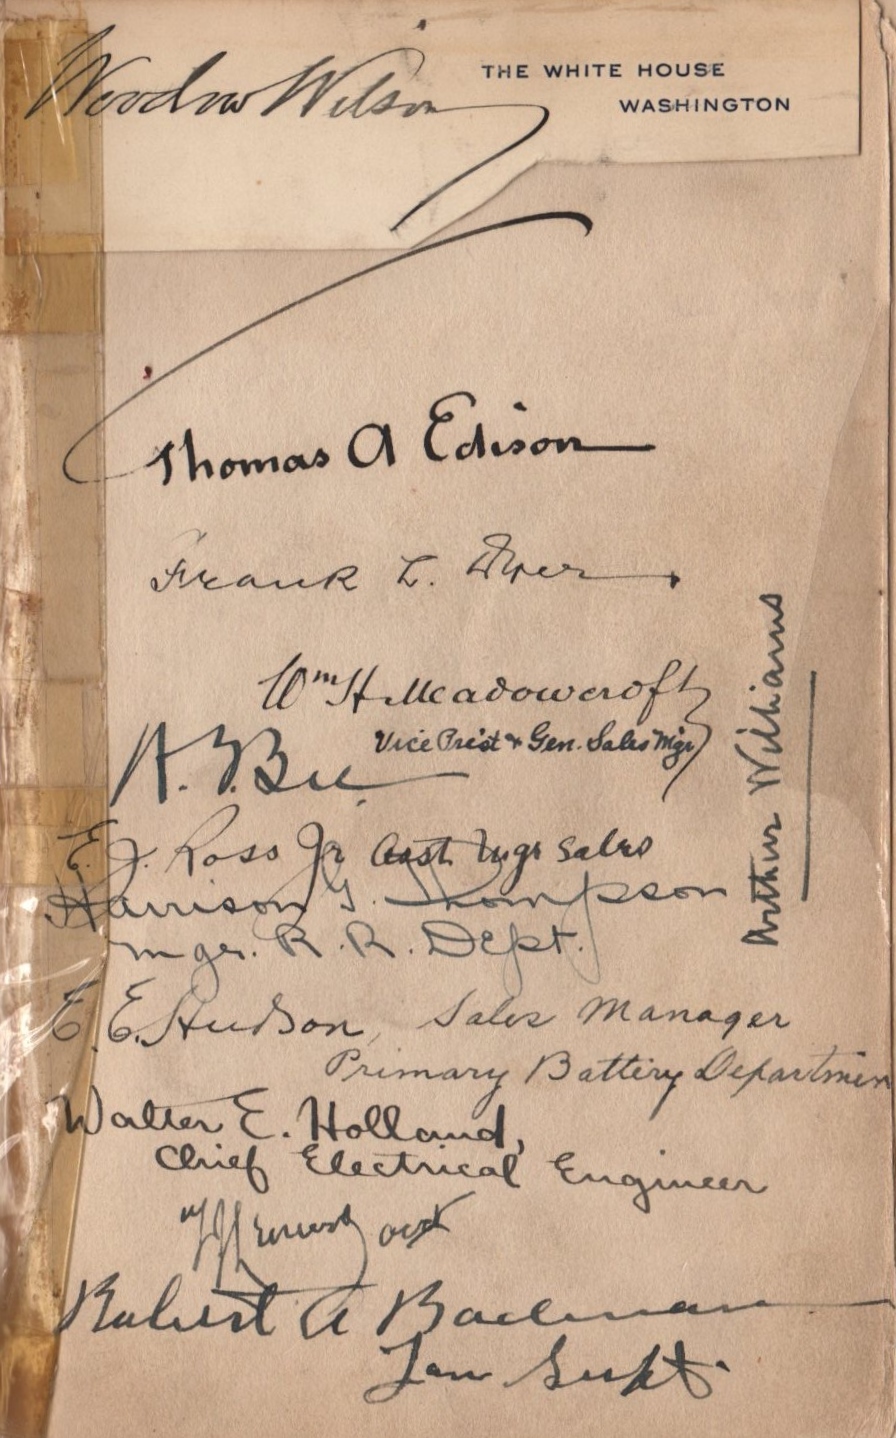 Woodrow Wilson
THE WHITE HOUSE
WASHINGTON
Thomas A Edison
Frank L. Dyer
Wm H Meadowcroft
Vice Prest & Gen. Sales Mgr
H. F. Bee
E. J. Ross Jr Asst Mgr Sales
Harrison G. Thompson
mgr. R. R. Dept.
E. E. Hudson, Sales Manager
Primary Battery Departmen
Walter E. Holland,
Chief Electrical Engineer
Robert A Bachman
Gen Supt.
Arthur Williams